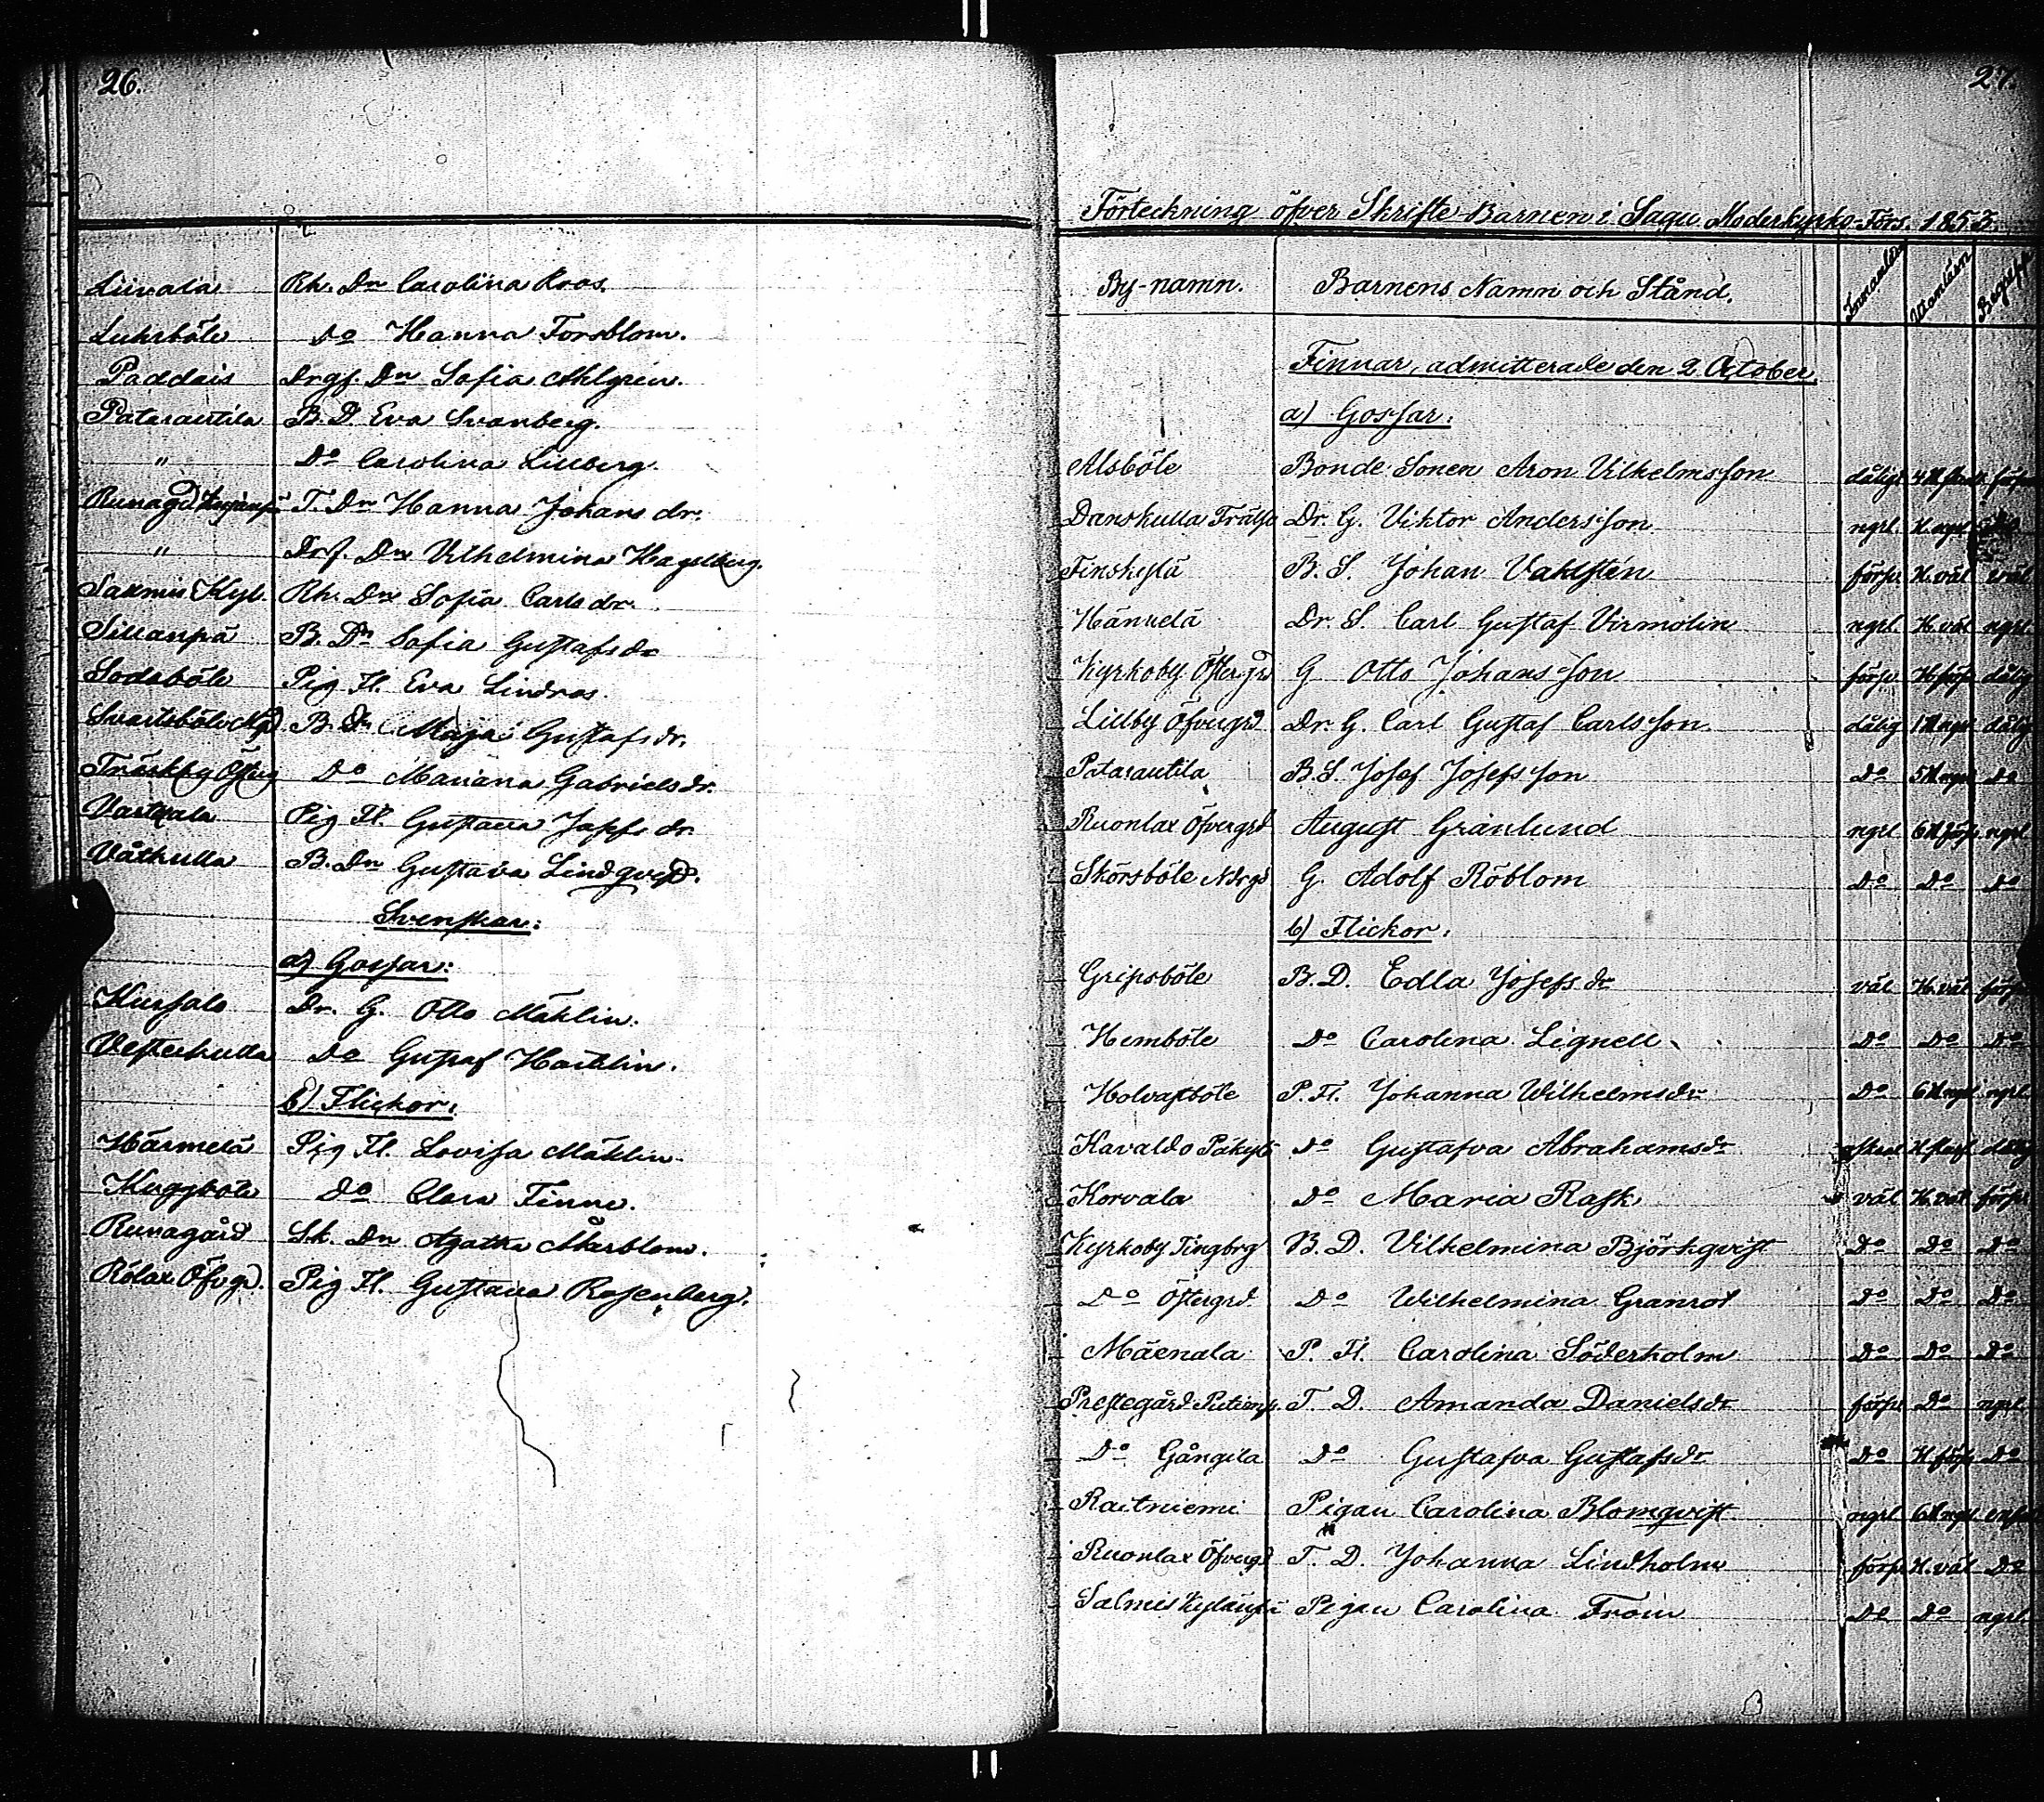 26.
Liivala Rh. Dn Carolina Roos.
Luhrböle Do Hanna Forsblom.
Paddais Drgf. Dn Sofia Ahlgren.
Patarautila B. D. Eva Svanberg.
" Do Carolina Lillberg.
Runagd T. Dn Hanna Johans dr.
" Drf. Dn Vilhelmina Hagelberg.
Salmis Kyl. Rh. Dn Sofia Carls dr.
Sillanpä B. Dn Sofia Gustafs dr
Sodaböle Pig Fl. Eva Lindros.
Svartsböle Ngd B. Dn Maja Gustafs dr.
Träskby Östeg Do Mariana Gabriels dr.
Vartsala Pig Fl. Gustava Josefs dr.
Våthulla B. Dn Gustava Lindqvist.
Svenskar:
a) Gossar:
Kurfalo Dr. G. Otto Mählin.
Vesterkulla Do Gustaf
b) Flickor:
Härmelä Pig Fl. Lovisa Mählin.
Kuggböle Do Clara Finne.
Runagård Sk. Dn Agatha Åkerblom.
Rölax Öfvgd. Pig Fl. Gustava Rosenberg.
27.
Förteckning öfver Skrifte-Barnen i Sagu Moderkyrko-Förs. 1853.
By-namn. Barnens Namn och Stånd. Innanläs Utanläsn Begrepp
Finnar, admitterade den 2 October
a) Gossar:
Alsböle Bonde Sonen Aron Vilhelmsson dåligt
Danskulla Frälse Dr. G. Viktor Andersson ngrl. H. ngrl
Finskylä B. S. Johan Vahlstén försv. H. väl väl
Hännelä Dr. S. Carl Gustaf Virmolin ngrl. H. väl ngrl.
Kyrkoby Östergd G Otto Johansson försv. H. försv dålig
Lillby Öfvergd Dr. G. Carl Gustaf Carlsson dålig 1 H ngrl dålig
Patarautila B. S. Josef Josefsson Do 5 H ngrl Do
Ruonlax Öfvergrd August Granlund ngrl 6 H försv ngrl
Skörsböle Ndrgd G. Adolf Röblom Do Do Do
b) Flickor:
Gripsböle B. D. Edla Josefs dr väl H. väl försv
Hemböle Do Carolina Lignell Do Do Do
Holvastböle P. Fl. Johanna Wilhelmsdr Do 6 H ngrl ngrl
Kavaldo Päkylä Do Gustafva Abrahamsdr dålig
Korvala Do Maria Rask väl H. väl försv
Kyrkoby Tingbrg B. D. Vilhelmina Björkqvist Do Do Do
Do Östergrd Do Wilhelmina Granrot Do Do Do
Mäenala P. Fl. Carolina Söderholm Do Do Do
Prestegård T. D. Amanda Danielsdr försv Do ngrl
Do Gångila Do Gustafva Gustafsdr Do H. försv Do
Raitniemi Pigan Carolina Blomqvist ngrl 6 H ngrl
Ruonlax Öfvergd T. D. Johanna Lindholm försv H. väl Do
Salmis Kylänpä Pigan Carolina From Do Do ngrl